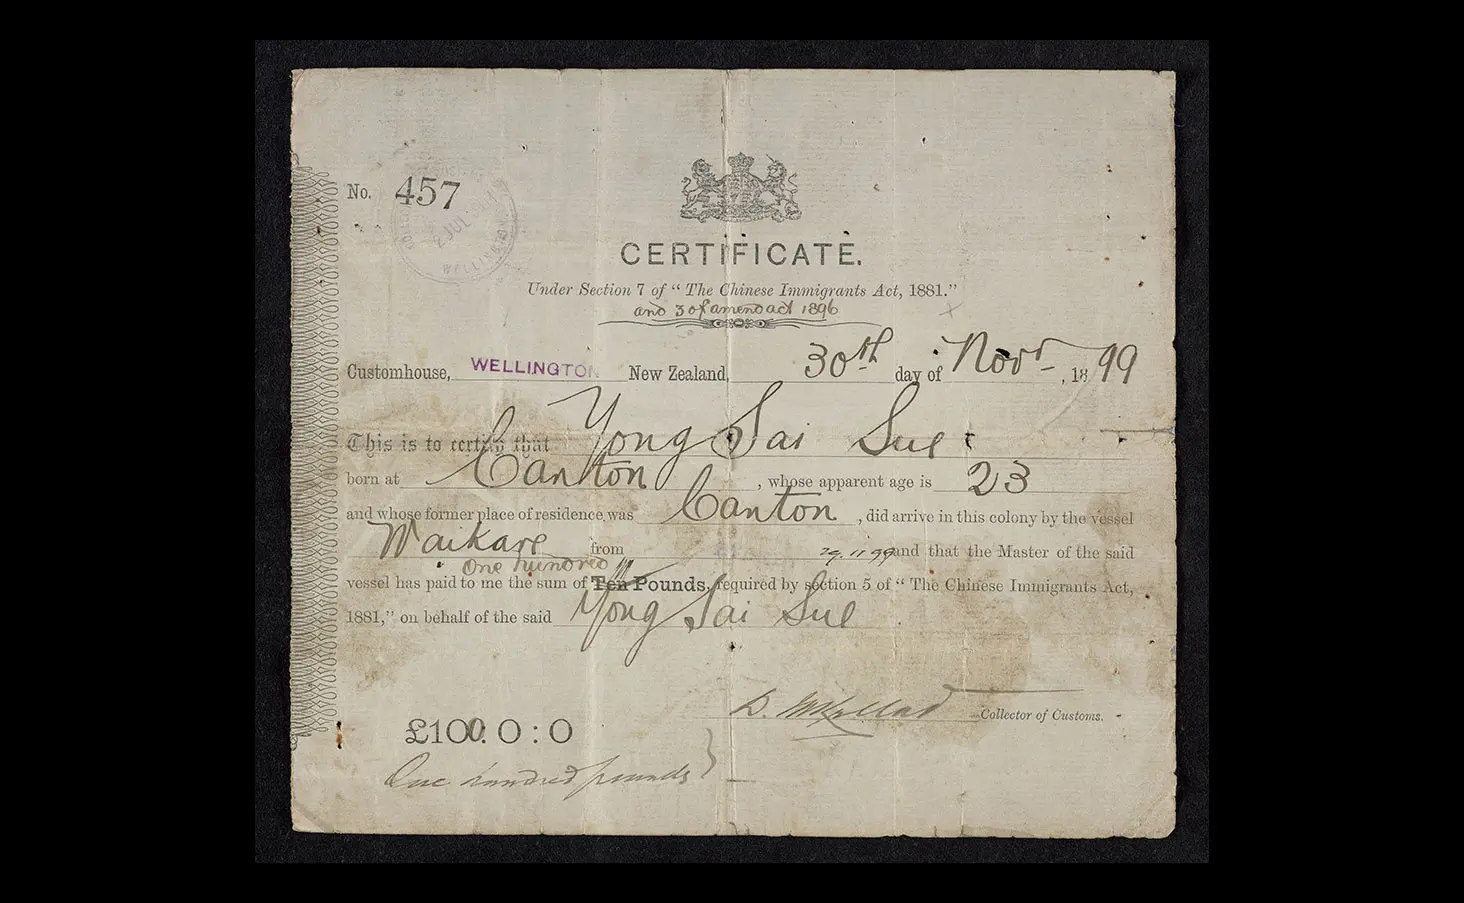 No. 457
2 JUL
WELLIN
CERTIFICATE.
Under Section 7 of “ The Chinese Immigrants Act, 1881.”
and 3 of amend act 1896
Customhouse, WELLINGTON New Zealand, 30th day of Novr, 1899
This is to certify that Yong Sai Sue
born at Canton, whose apparent age is 23
and whose former place of residence was Canton, did arrive in this colony by the vessel
Waikare from 29.11.99 and that the Master of the said
One hundred
vessel has paid to me the sum of Ten Pounds, required by section 5 of “ The Chinese Immigrants Act,
1881,” on behalf of the said Yong Sai Sue
D. McKellar Collector of Customs.
£100:0:0
One hundred pounds